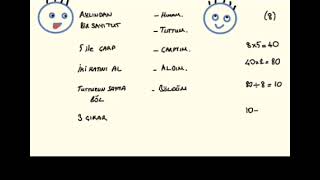 AKLINDAN - Hımm. (8)
BİR SAYI TUT - TUTTUM.
5 İLE ÇARP - ÇARPTIM. 8x5=40
İKİ KATINI AL - ALDIM. 40x2=80
TUTTUĞUN SAYIYA BÖL - BÖLDÜM 80÷8=10
3 ÇIKAR 10-